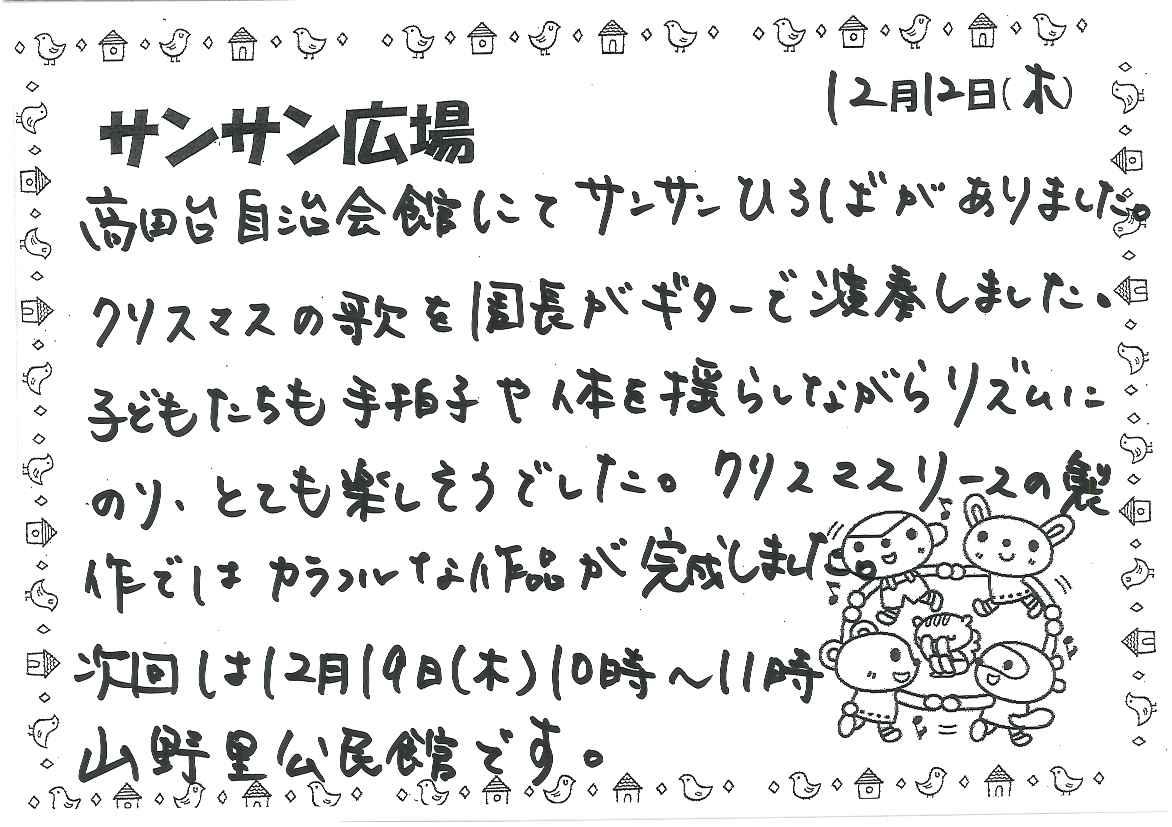 12月12日(木)
サンサン広場
高田台自治会館にてサンサンひろばがありました。
クリスマスの歌を園長がギターで演奏しました。
子どもたちも手拍子や体を揺らしながらリズムに
のり、とても楽しそうでした。クリスマスリースの製
作ではカラフルな作品が完成しました。
次回は12月19日(木)10時~11時
山野里公民館です。